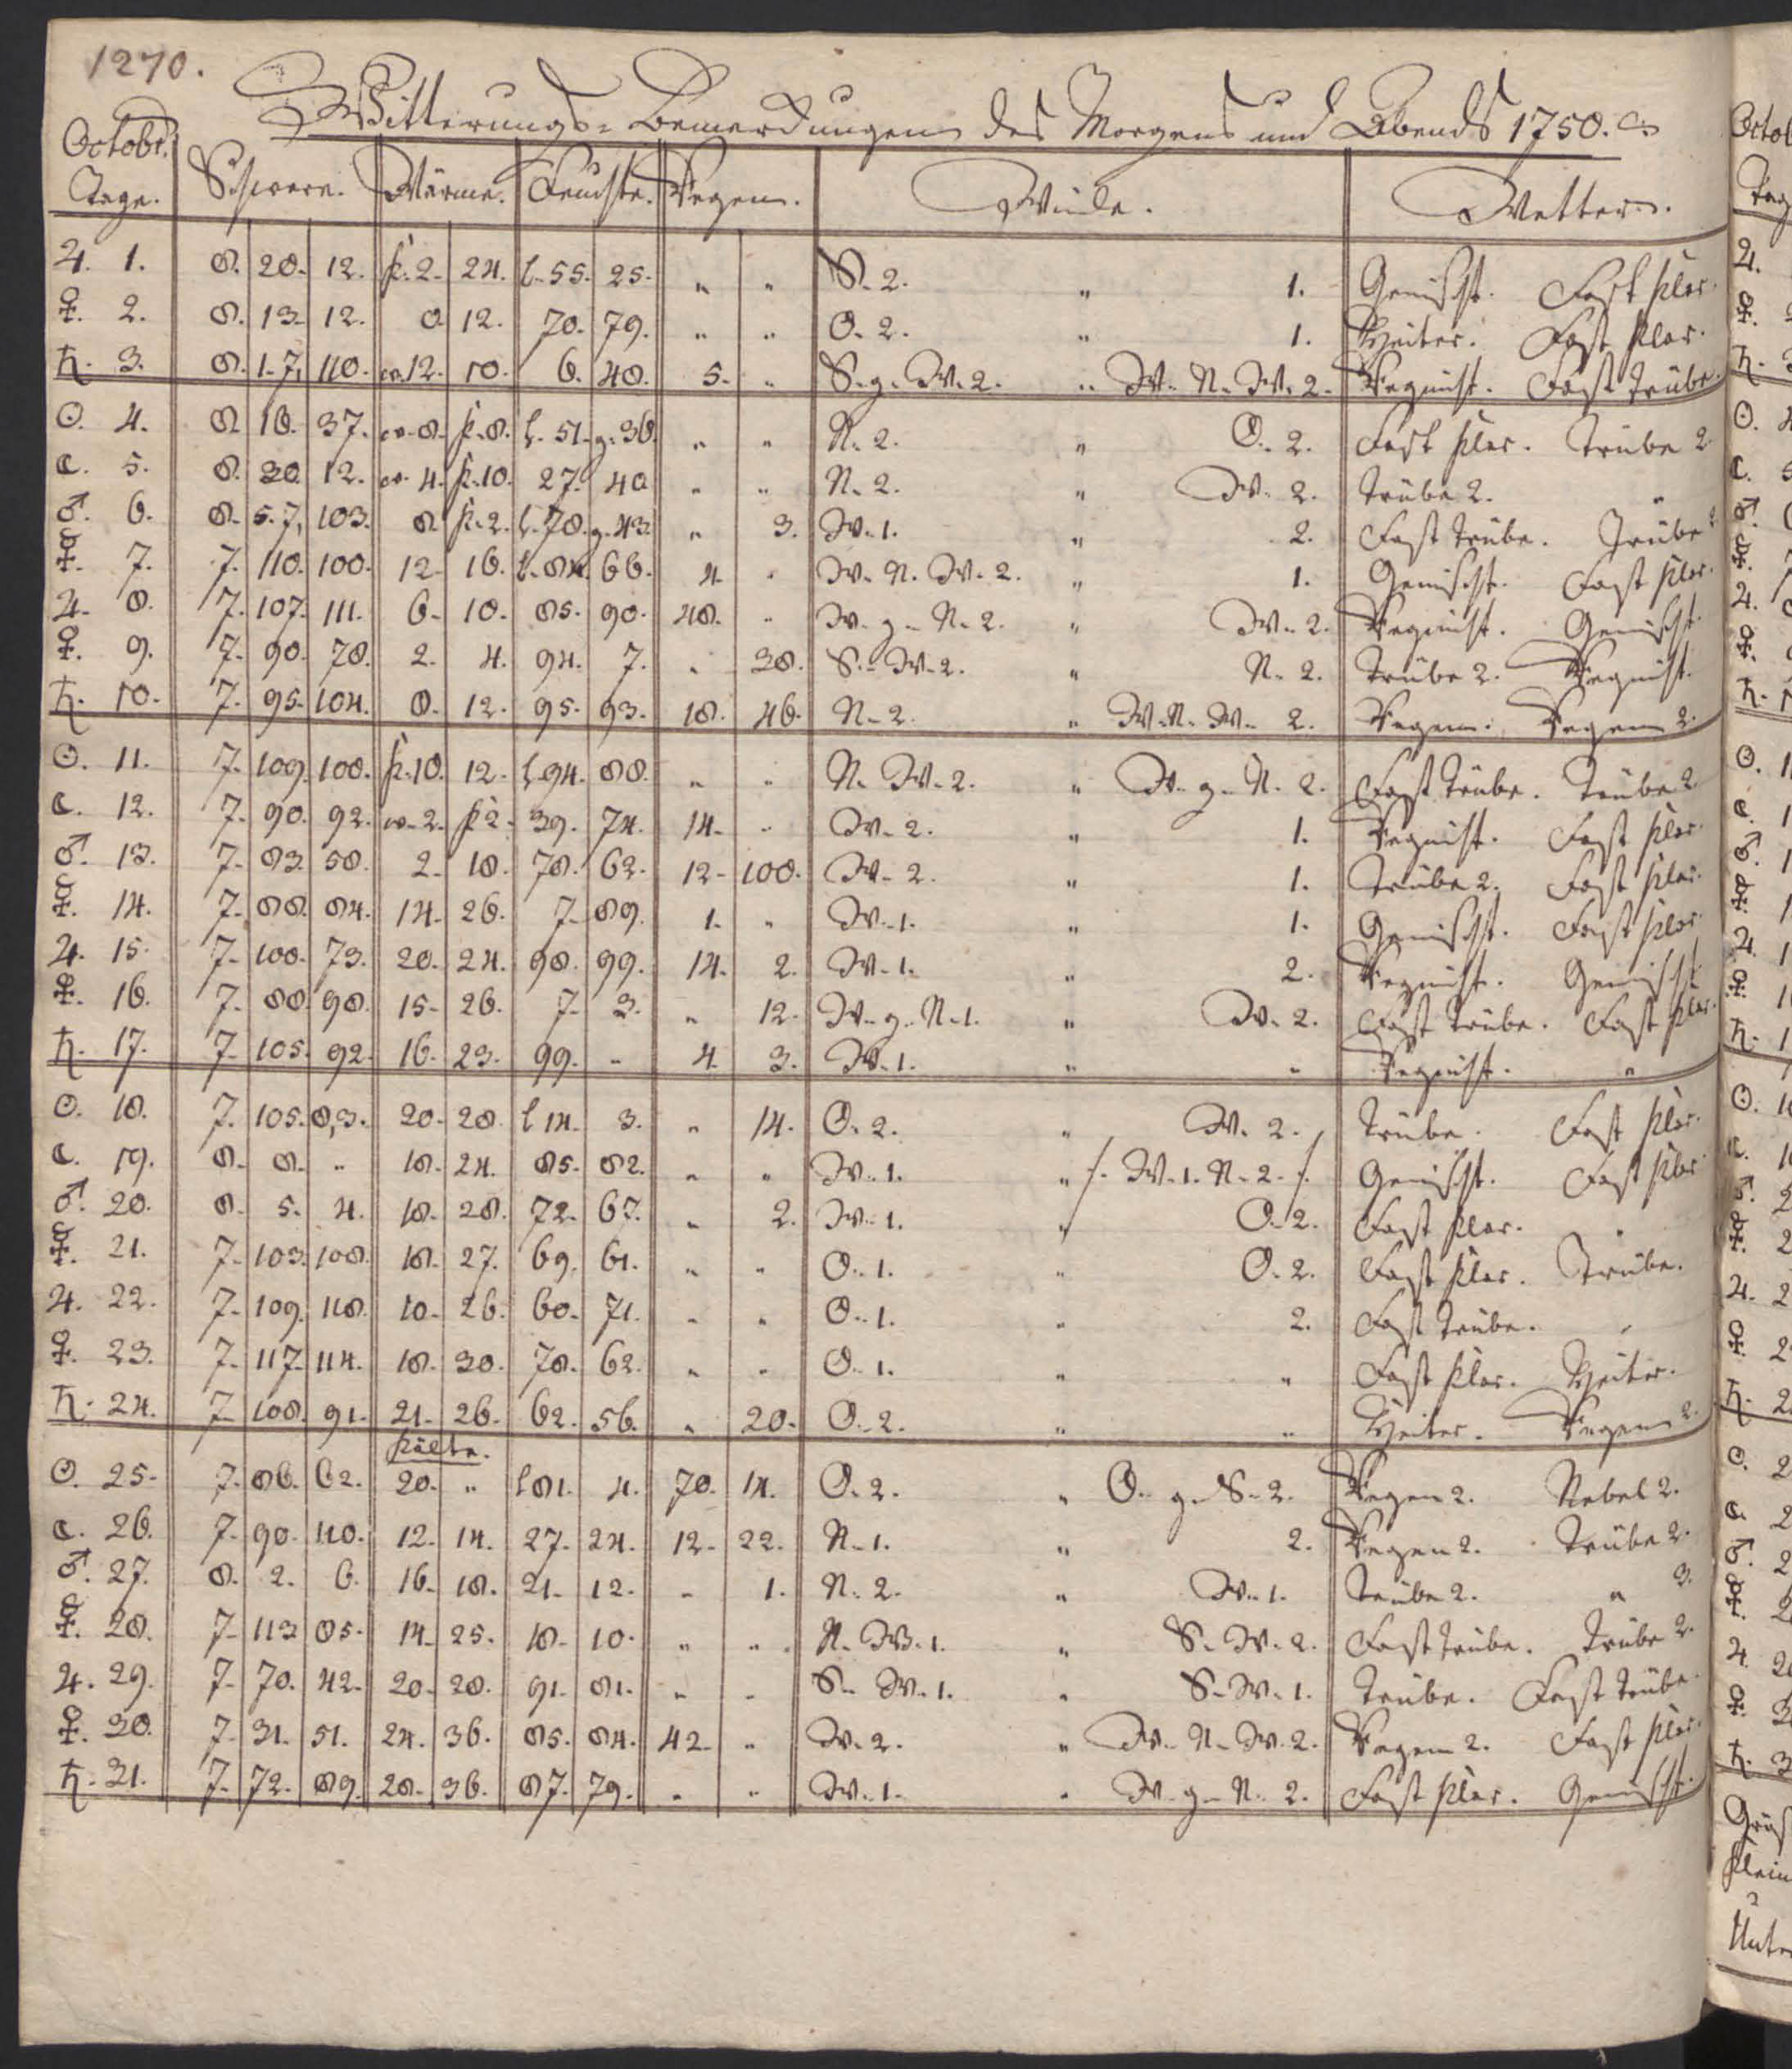 1270.
Witterungs-Bemerckungen des Morgens und Abends 1750.
Octobr.
Tage. Schwere. Wärme. Feuchte. Regen. Winde. Wetter.
♃. 1. 8. 20. 12. k. 2. 24. l. 55. 25. " " S. 2. " 1. Gemischt. Fast klar.
♀. 2. 8. 13. 12. 0 12. 70. 79. " " O. 2. " 1. Heiter. Fast klar.
♄. 3. 8. 1. 7, 110. w. 12. 10. 6. 48. 5. " S. g. W. 2. " W. N. W. 2. Regnicht. Fast trübe.
☉. 4. 8. 18. 37. w. 8. k. 8. l. 51. g. 38. " " N. 2. " O. 2. Fast klar. Trübe 2.
☾. 5. 8. 30. 12. w. 4. k. 10. 27. 40 " " N. 2. " W. 2. Trübe 2. "
♂. 6. 8. 5. 7, 103. 8. k. 2. l. 78. g. 43. " 3. W. 1. " 2. Fast trübe. Trübe 2.
☿. 7. 7. 110. 100. 12. 16. l. 84. 66. 4. " W. N. W. 2. " 1. Gemischt. Fast klar.
♃. 8. 7. 107. 111. 6. 10. 85. 90. 48. " W. g. N. 2. " W. 2. Regnicht. Gemischt.
♀. 9. 7. 90. 78. 2. 4. 94. 7. " 38. S. W. 2. " N. 2. Trübe 2. Regnicht.
♄. 10. 7. 95. 104. 8. 12. 95. 93. 18. 46. N. 2. " W. N. W. 2. Regen. Regen 2.
☉. 11. 7. 109. 108. k. 10. 12. l. 94. 88. " " N. W. 2. " W. g. N. 2. Fast trübe. Trübe 2.
☾. 12. 7. 90. 92. w. 2. k 2. 39. 74. 14. " W. 2. " 1. Regnicht. Fast klar.
♂. 13. 7. 83. 58. 2. 18. 78. 62. 12. 100. W. 2. " 1. Trübe 2. Fast klar.
☿. 14. 7. 88. 84. 14. 26. 7. 89. 1. " W. 1. " 1. Gemischt. Fast klar.
♃. 15. 7. 100. 73. 20. 24. 98. 99. 14. 2. W. 1. " 2. Regnicht. Gemischt.
♀. 16. 7. 88. 98. 15. 26. 7. 3. " 12. W. g. N. 1. " W. 2. Fast trübe. Fast klar.
♄. 17. 7. 105. 92. 16. 23. 99. " 4. 3. W. 1. " " Regnicht. "
☉. 18. 7. 105. 8, 3. 20. 28. l 14. 3. " 14. O. 2. " W. 2. Trübe. Fast klar.
☾. 19. 8. 8. " 18. 24. 85. 82. " " W. 1. " /. W. 1. N. 2. /. Gemischt. Fast klar
♂. 20. 8. 5. 4. 18. 28. 72. 67. " 2. W. 1. " O. 2. Fast klar. "
☿. 21. 7. 103. 108. 18. 27. 69. 61. " " O. 1. " O. 2. Fast klar. Trübe.
♃. 22. 7. 109. 118. 10. 26. 60. 71. " " O. 1. " 2. Fast trübe. "
♀. 23. 7. 117. 114. 18. 30. 78. 62. " " O. 1. " " Fast klar. Heiter.
♄. 24. 7. 108. 91. 21. 26. 62. 56. " 20. O. 2. " " Heiter. Regen 2.
Kälte.
☉. 25. 7. 86. 62. 20. " l 81. 4. 70. 14. O. 2. " O. g. S. 2. Regen 2. Nebel 2.
☾. 26. 7. 90. 110. 12. 14. 27. 24. 12. 22. N. 1. " 2. Regen 2. Trübe 2.
♂. 27. 8. 2. 6. 16. 18. 21. 12. " 1. N. 2. " W. 1. Trübe 2. " 3.
☿. 28. 7. 113 85. 14. 25. 18. 10. " " N. W. 1. " S. W. 2. Fast trübe. Trübe 2.
♃. 29. 7. 70. 42. 20. 28. 91. 81. " " S. W. 1. " S. W. 1. Trübe. Fast trübe.
♀. 30. 7. 31. 51. 24. 36. 85. 84. 42. " W. 2. " W. N. W. 2. Regen 2. Fast klar.
♄. 31. 7. 72. 89. 28. 36. 87. 79. " " W. 1. " W. g. N. 2. Fast klar. Gemischt.